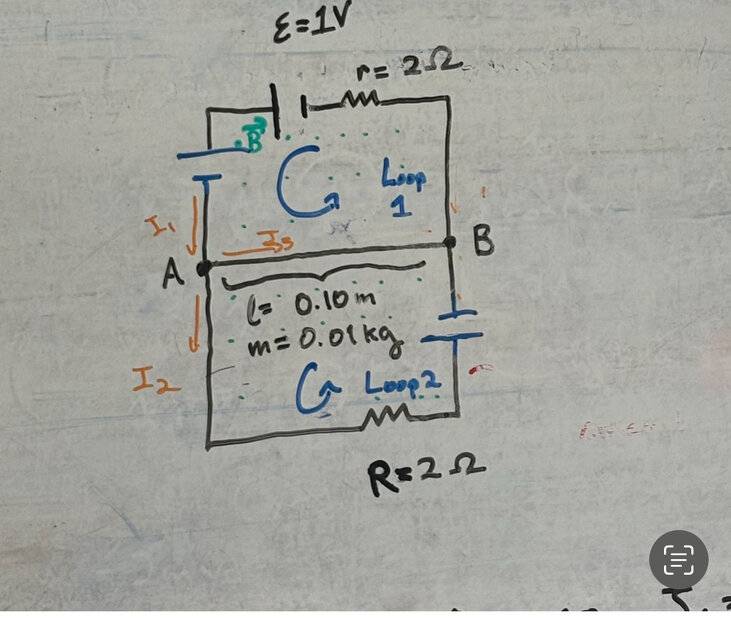 ε=1V
r= 2Ω
B
Loop
1
I₁
I₃
A
B
l= 0.10m
m=0.01kg
I₂
Loop2
R=2Ω